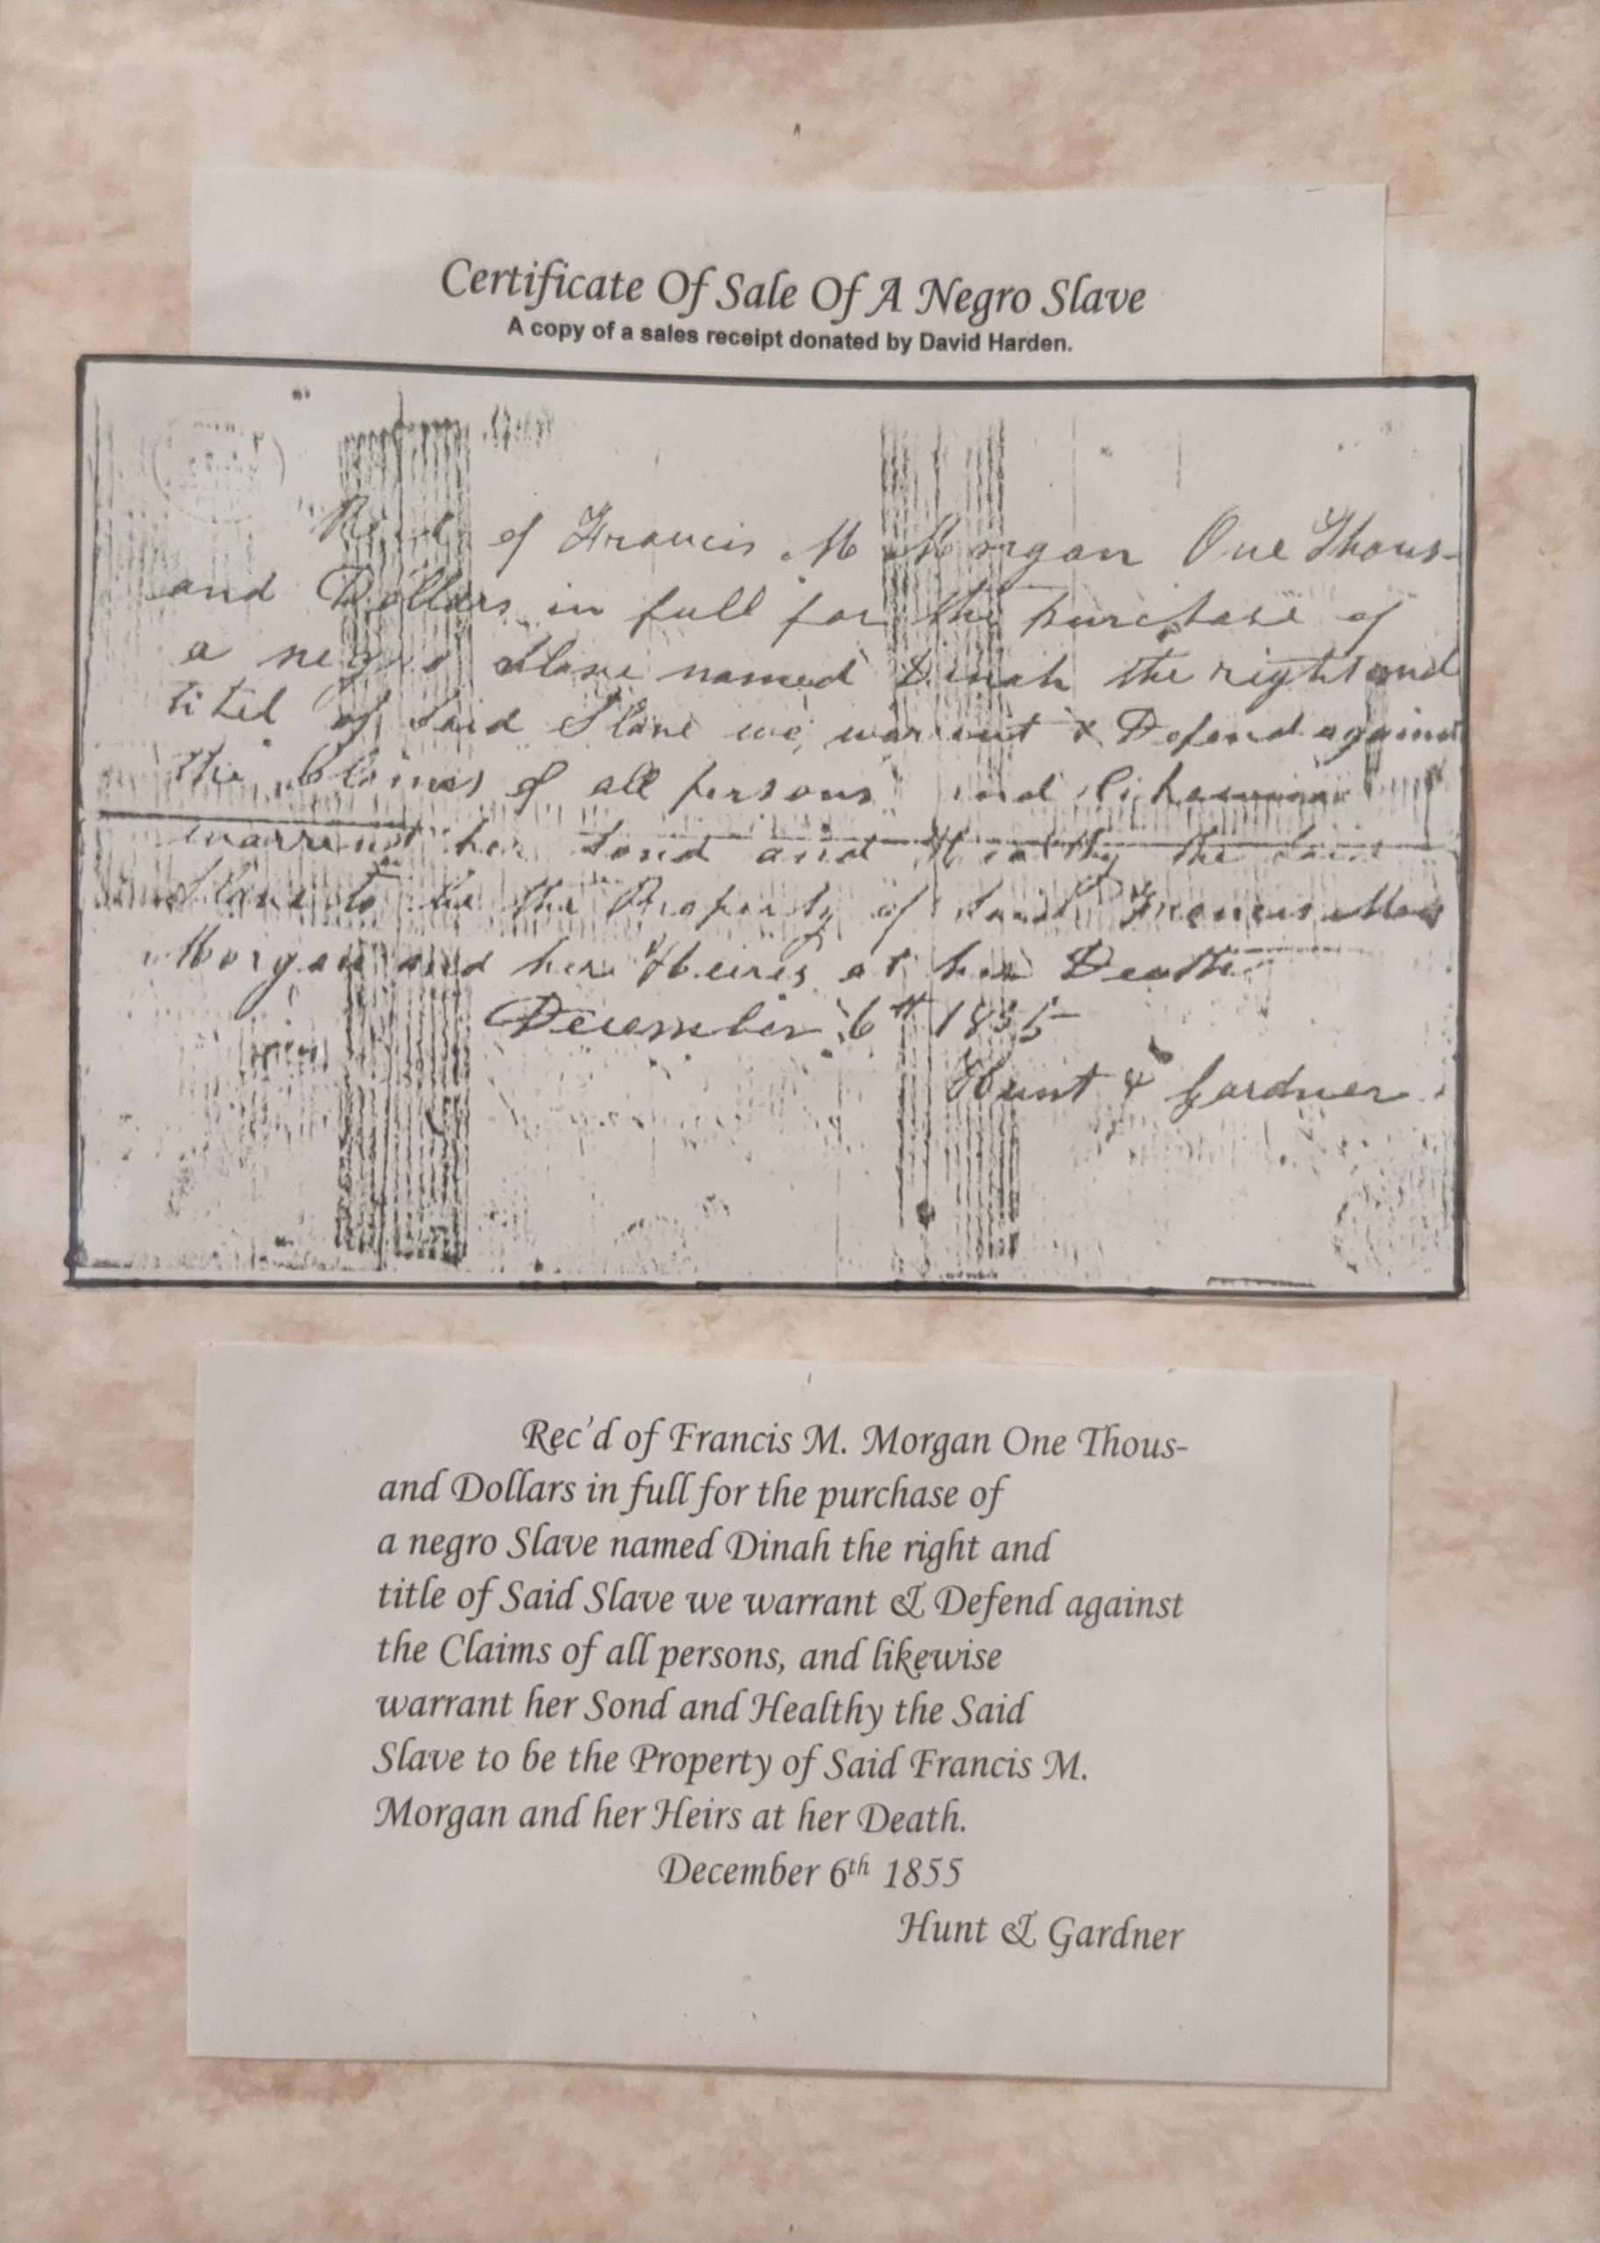 Certificate Of Sale Of A Negro Slave
A copy of a sales receipt donated by David Harden.
Rec'd of Francis M Morgan One Thous-
and Dollars in full for the purchase of
a negro Slave named Dinah the right and
titel of Said Slave we warrent & Defend against
the Claims of all persons and likewise
warrent her Sond and Healthy the Said
Slave to be the Property of Said Francis
Morgan and her Heirs at her Death
December 6th 1855
Hunt & Gardner
Rec'd of Francis M. Morgan One Thous-
and Dollars in full for the purchase of
a negro Slave named Dinah the right and
title of Said Slave we warrant & Defend against
the Claims of all persons, and likewise
warrant her Sond and Healthy the Said
Slave to be the Property of Said Francis M.
Morgan and her Heirs at her Death.
December 6th 1855
Hunt & Gardner